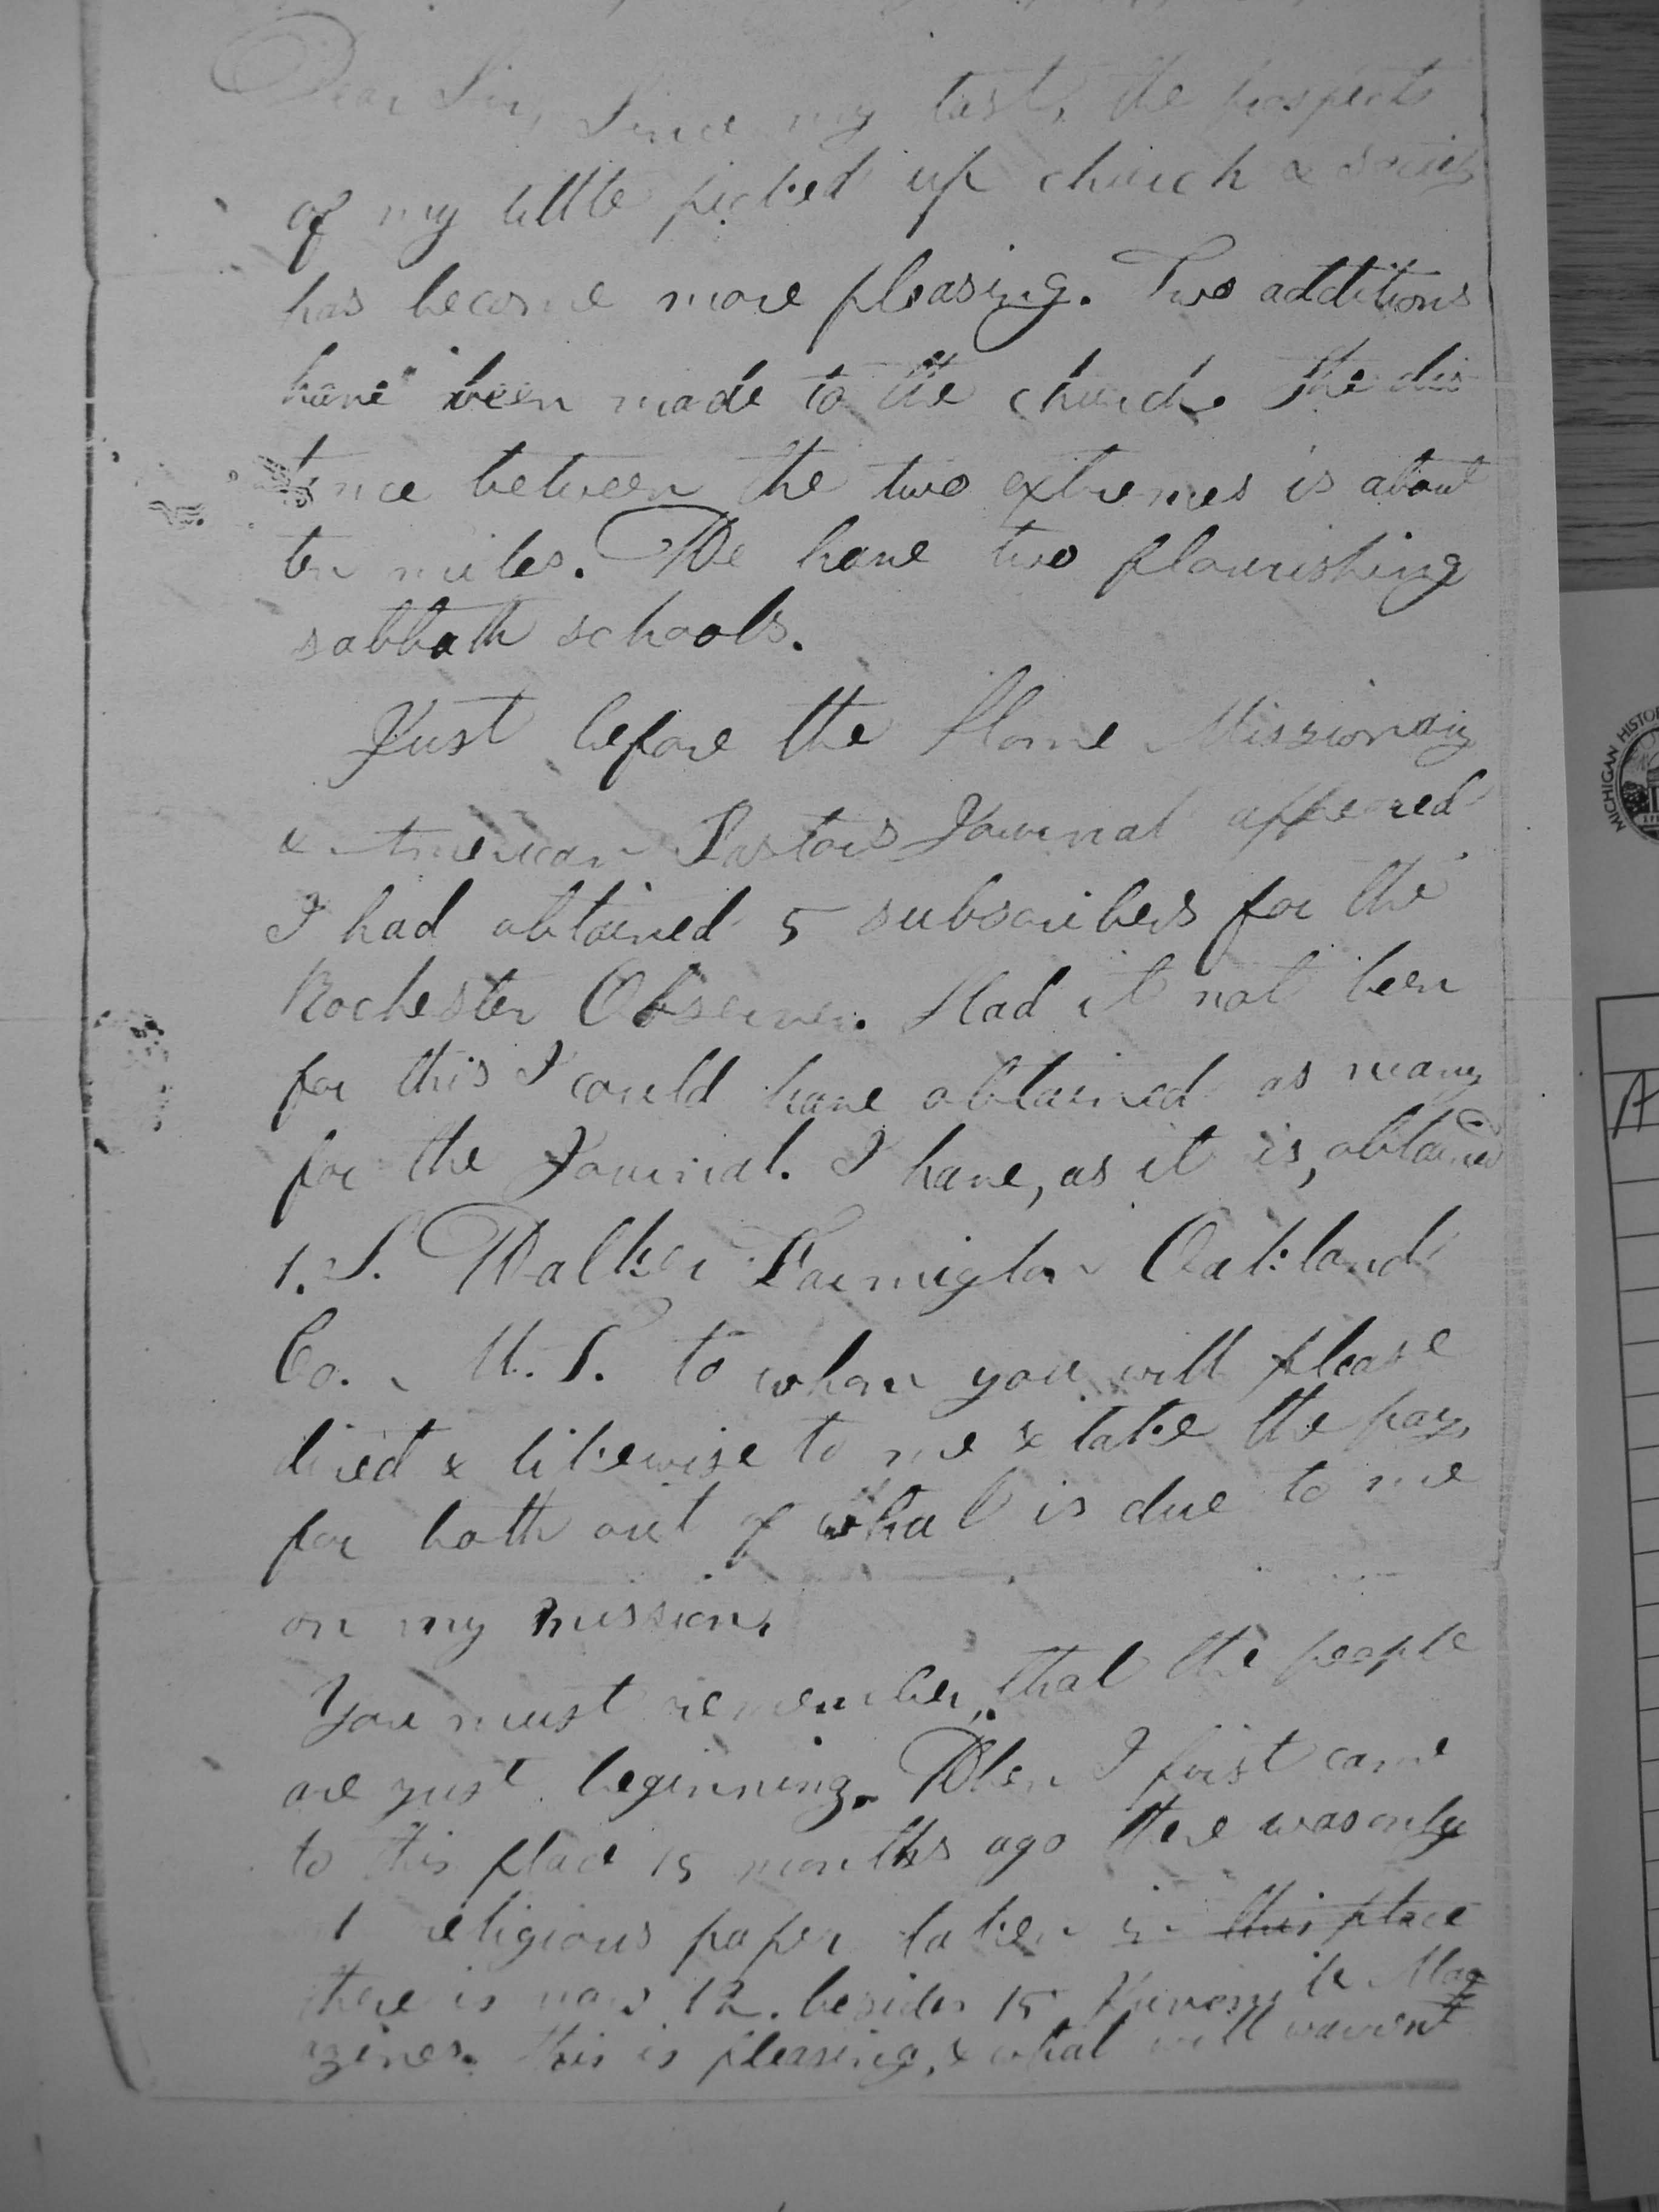 Dear Sir, Since my last, the prospects
of my little picked up church & society
has become more pleasing. Two additions
have been made to the church. The dis
tance between the two extremes is about
ten miles. We have two flourishing
sabbath schools.
Just before the Home Missionary
& American Pastors Journal appeared
I had obtained 5 subscribers for the
Rochester Observer. Had it not been
for this I could have obtained as many
for the Journal. I have, as it is, obtained
1. S. Walker Farmigton Oakland
Co. M. T. to whom you will please
direct & likewise to me & take the pay
for both out of what is due to me
on my mission.
You must remember, that the people
are just beginning. When I first came
to this place 15 months ago there was only
1 religious paper taken in this place
there is now 12. besides 15 Juvenile Mag
azines. this is pleasing, & what will warrent
MICHIGAN HISTO
A